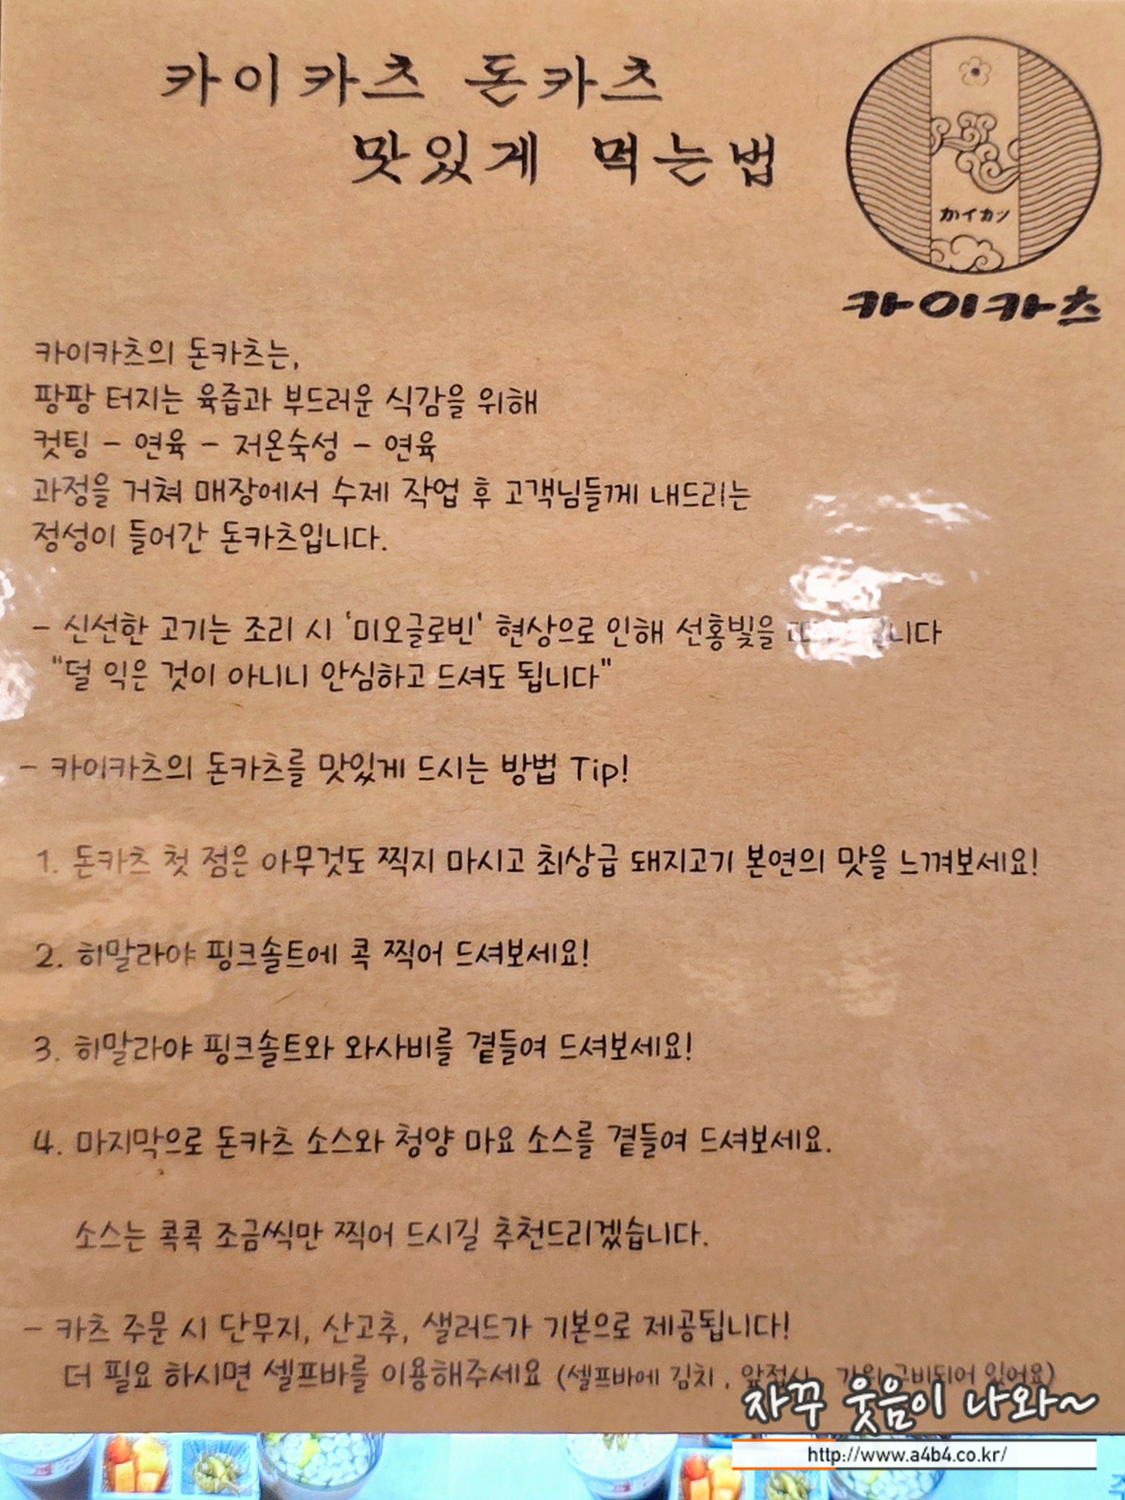 카이카츠 돈카츠
맛있게 먹는법
カイカツ
카이카츠
카이카츠의 돈카츠는,
팡팡 터지는 육즙과 부드러운 식감을 위해
컷팅 - 연육 - 저온숙성 - 연육
과정을 거쳐 매장에서 수제 작업 후 고객님들께 내드리는
정성이 들어간 돈카츠입니다.
- 신선한 고기는 조리 시 '미오글로빈' 현상으로 인해 선홍빛을
"덜 익은 것이 아니니 안심하고 드셔도 됩니다"
- 카이카츠의 돈카츠를 맛있게 드시는 방법 Tip!
1. 돈카츠 첫 점은 아무것도 찍지 마시고 최상급 돼지고기 본연의 맛을 느껴보세요!
2. 히말라야 핑크솔트에 콕 찍어 드셔보세요!
3. 히말라야 핑크솔트와 와사비를 곁들여 드셔보세요!
4. 마지막으로 돈카츠 소스와 청양 마요 소스를 곁들여 드셔보세요.
소스는 콕콕 조금씩만 찍어 드시길 추천드리겠습니다.
- 카츠 주문 시 단무지, 산고추, 샐러드가 기본으로 제공됩니다!
더 필요 하시면 셀프바를 이용해주세요 (셀프바에 김치 , 앞접시, 구비되어 있어요)
자꾸 웃음이 나와~
http://www.a4b4.co.kr/